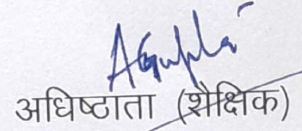 AGupta
अधिष्ठाता (शैक्षिक)